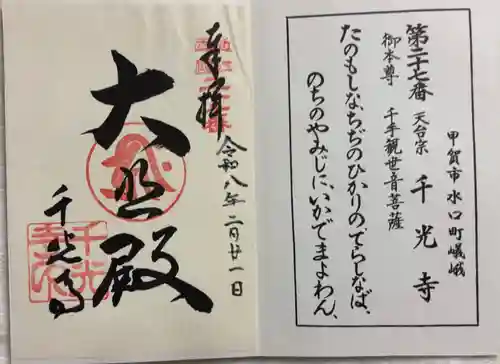 甲賀市 水口町嵯峨
第二十七番 天台宗 千光寺
御本尊 千手観世音菩薩
たのもしなちぢのひかりのてらしなば、
のちのやみじに、いかでまよわん、
奉拝
令和八年二月廿一日
大悲殿
千光寺